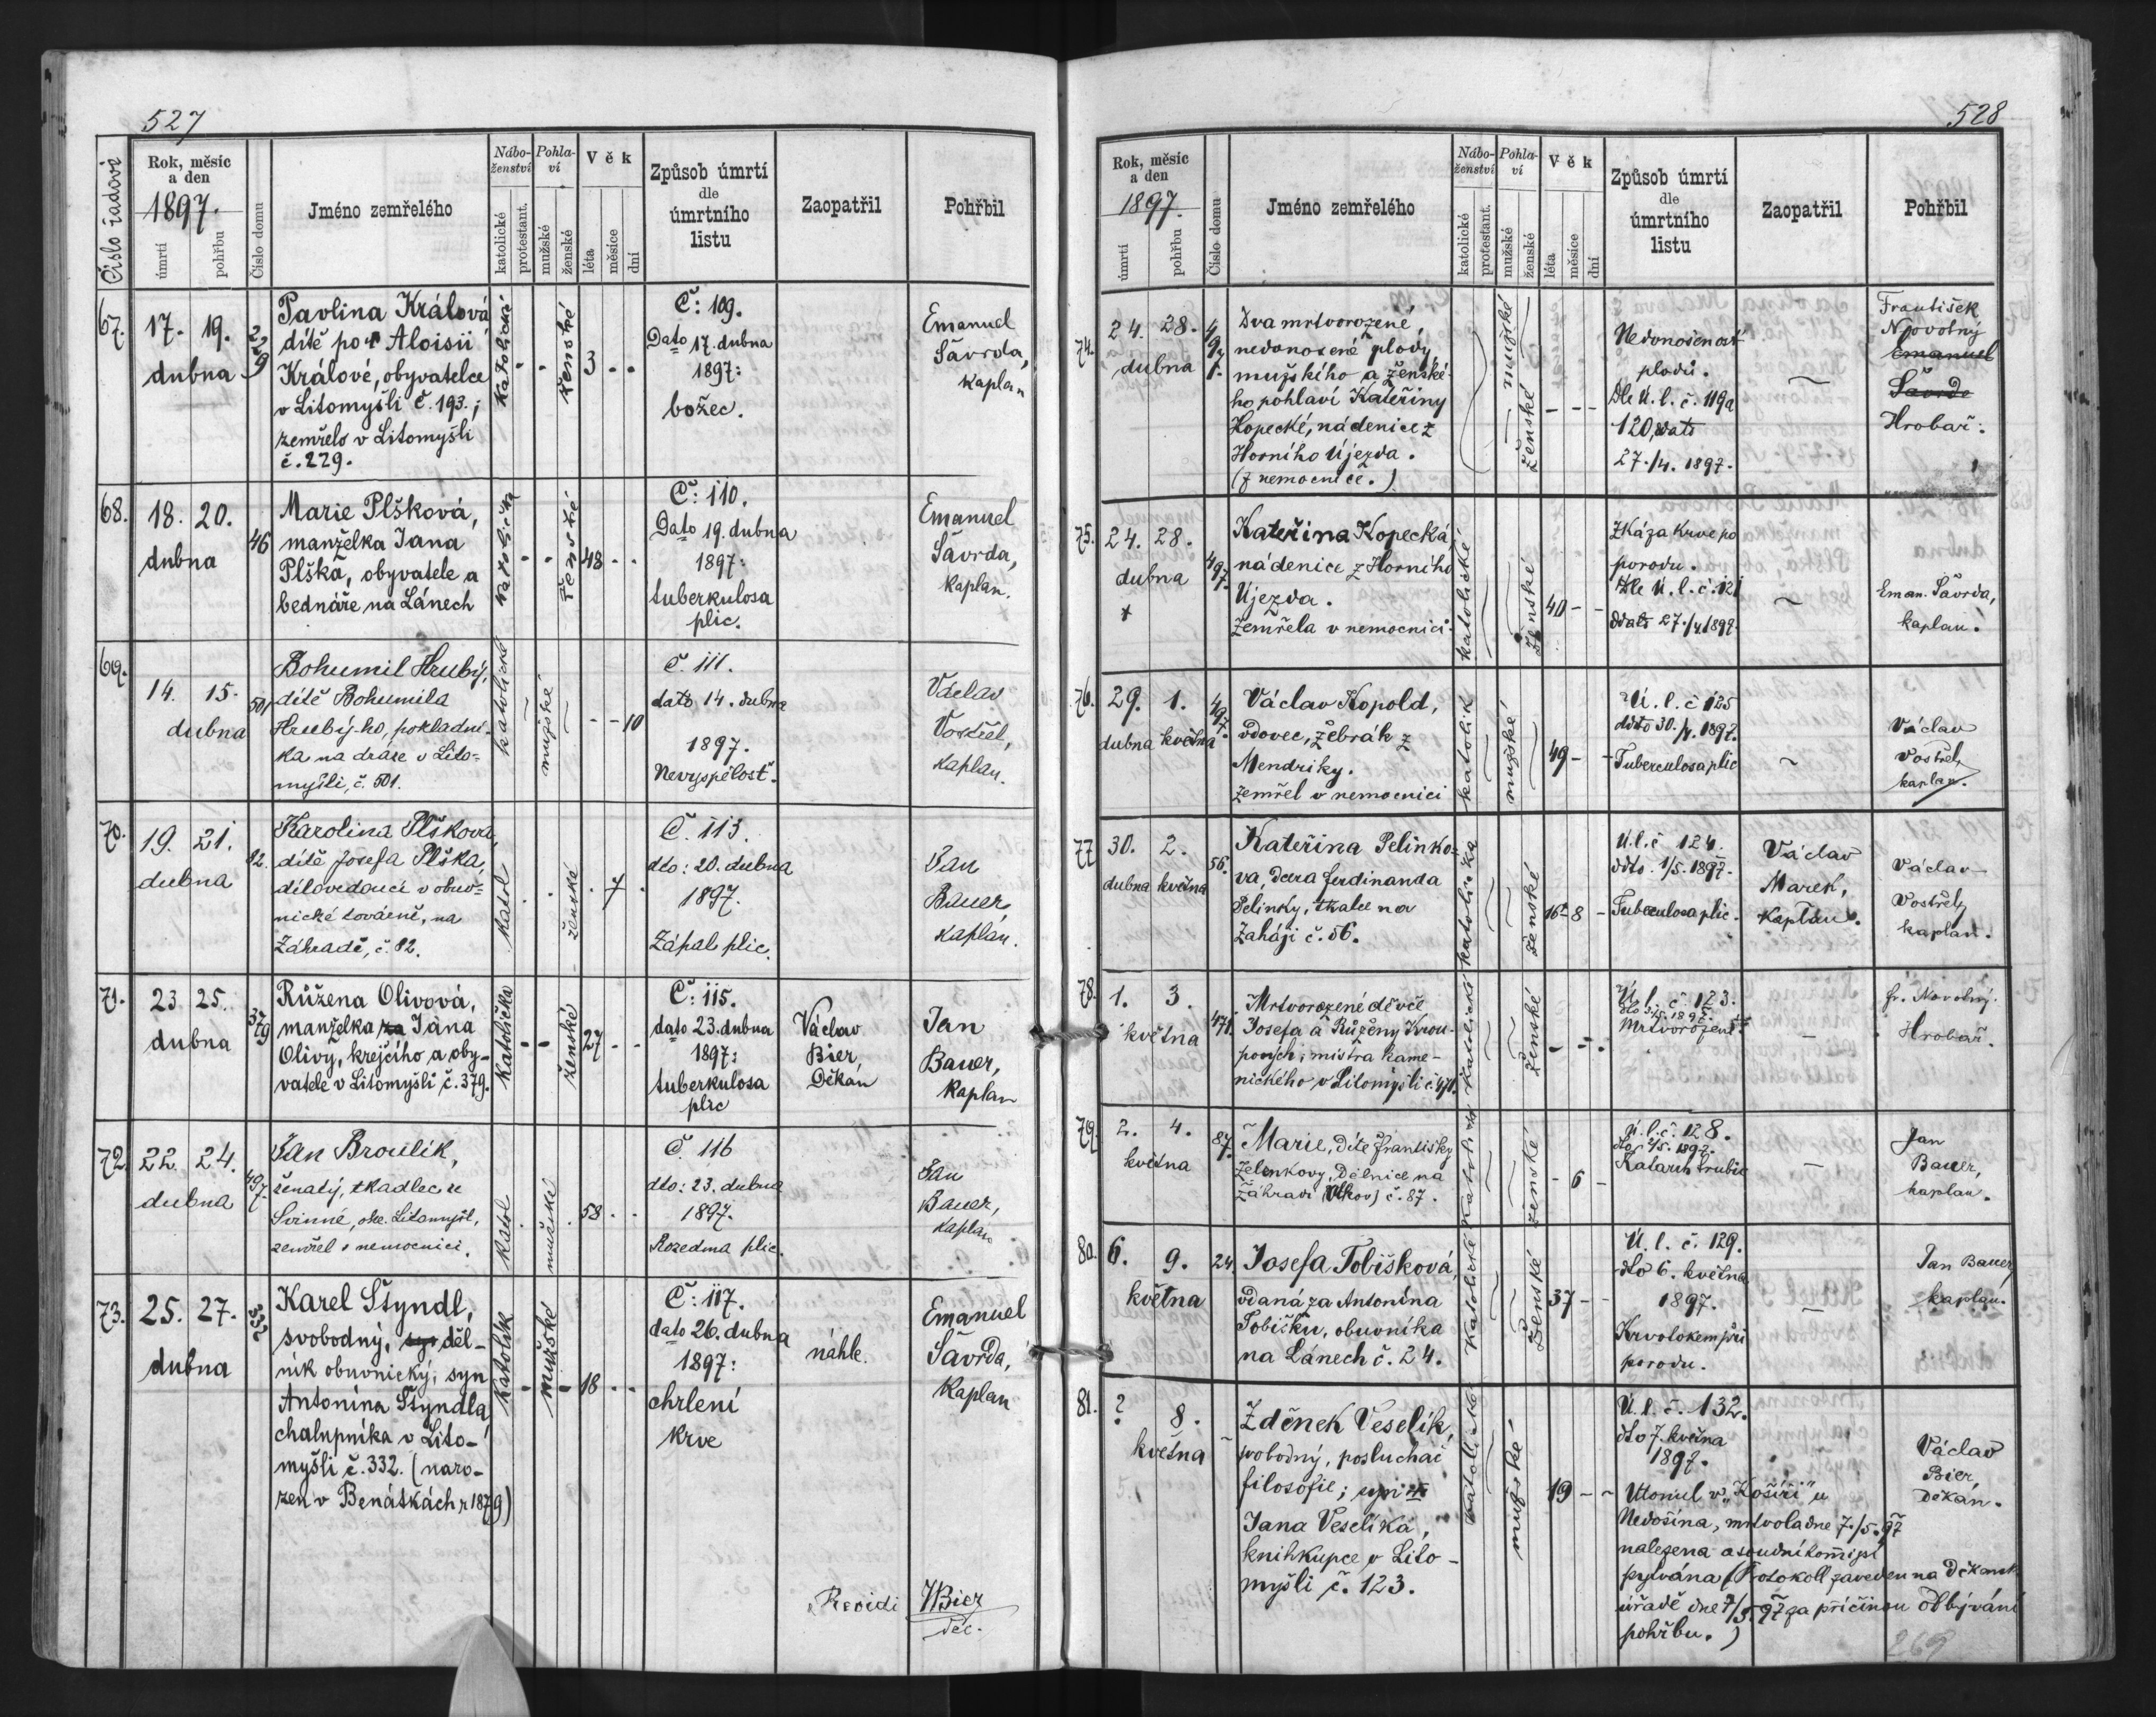 527
Číslo řadové
Rok, měsíc
a den
1897.
úmrtí
pohřbu
Číslo domu
Jméno zemřelého
Nábo-
ženství
katolické
protestant.
Pohla-
ví
mužské
ženské
Věk
léta
měsíce
dní
Způsob úmrtí
dle
úmrtního
listu
Zaopatřil
Pohřbil
67.
17. 19.
dubna
229
Pavlina Králová
dítě po Aloisii
Králové, obyvatelce
v Litomyšli č. 193.;
zemřelo v Litomyšli
č. 229.
katolické
ženské
3
Č: 109.
Dato 17. dubna
1897:
božec.
Emanuel
Šavrda,
kaplan
68.
18. 20.
dubna
46
Marie Plšková,
manželka Jana
Plška, obyvatele a
bednáře na Lánech
katolička
ženské
48
Č: 110.
Dato 19. dubna
1897:
tuberkulosa
plic.
Emanuel
Šavrda,
kaplan.
69.
14. 15.
dubna
501
Bohumil Hrubý,
dítě Bohumila
Hrubý-ho, pokladní-
ka na dráze v Lito-
myšli, č. 501.
katolické
mužské
10
Č. 111.
dato 14. dubna
1897.
Nevyspělost.
Václav
Vostřel,
kaplan.
70.
19. 21.
dubna
82.
Karolina Plšková,
dítě Josefa Plška,
dílovedoucí v obuv-
nické továrně, na
Záhradě, č. 82.
katol
ženské
7
Č. 113.
dto: 20. dubna
1897.
Zápal plic.
Jan
Bauer,
kaplan.
71.
23. 25.
dubna
379
Růžena Olivová,
manželka za Jana
Olivy, krejčího a oby-
vatele v Litomyšli č. 379.
katolička
ženské
27
Č: 115.
dato 23. dubna
1897:
tuberkulosa
plic
Václav
Bier
Děkan
Jan
Bauer,
kaplan
72.
22. 24.
dubna
497.
Jan Broulik,
ženatý, tkadlec ze
Svinné, okr. Litomyšl,
zemřel v nemocnici.
katol
mužské
58
Č. 116
dto: 23. dubna
1897.
Rozedma plic.
Jan
Bauer,
kaplan
73.
25. 27.
dubna
332
Karel Štyndl,
svobodný, syn děl-
ník obuvnický, syn
Antonína Štyndla,
chalupníka v Lito-
myšli č. 332. (naro-
zen v Benátkách r 1879)
katolík
mužské
18
Č: 117.
dato 26. dubna
1897:
chrlení
krve
náhle.
Emanuel
Šavrda,
kaplan
Revidi VBier
děc.
528
Rok, měsíc
a den
1897.
úmrtí
pohřbu
Číslo domu
Jméno zemřelého
Nábo-
ženství
katolické
protestant.
Pohla-
ví
mužské
ženské
Věk
léta
měsíce
dní
Způsob úmrtí
dle
úmrtního
listu
Zaopatřil
Pohřbil
74.
24. 28.
dubna
497.
Dva mrtvorozené,
nedonošené plody
mužského a ženské-
ho pohlaví Kateřiny
Kopecké, nádenice z
Horního Újezda.
(z nemocnice.)
mužské
ženské
Nedonošenost
plodů.
Dle ú. l. č. 119 a
120, dato
27./4. 1897.
František
Novotný
Emanuel
Šavrda
Hrobař.
75.
24. 28.
dubna
497.
Kateřina Kopecká
nádenice z Horního
Újezda.
Zemřela v nemocnici.
katolické
ženské
40
Zkáza krve po
porodu.
Dle Ú. l. č. 121
ddato 27./4 1897.
Eman. Šavrda,
kaplan.
76.
29. 1.
dubna května
497.
Václav Kopold,
vdovec, žebrák z
Mendriky.
zemřel v nemocnici
katolík
mužské
49
Ú. l. č 125
ddto 30./4. 1897.
Tuberculosa plic
Václav
Vostřel,
kaplan.
77
30. 2.
dubna května
56.
Kateřina Pelinko-
va, dcera Ferdinanda
Pelinky, tkalce na
Zaháji č. 56.
katolička
ženské
16 8
Ú. l. č 124.
ddto. 1/5. 1897.
Tuberculosa plic.
Václav
Marek,
kaplan.
Václav
Vostřely
kaplan.
78.
1. 3.
května
471.
Mrtvorozené děvče
Josefa a Růženy Krou-
pových, mistra kame-
nického v Litomyšli č. 471.
katolické
ženské
Ú. l. č. 123.
Mrtvorozené.
Fr. Novotný.
Hrobař.
79.
2. 4.
května
87.
Marie, dítě Františky
Zelenkovy, Dělnice na
Záhradi (Vlkov) č. 87.
ženské
6
ú. l. č. 128.
dto 2/5. 1897.
Katarrh trubic
Jan
Bauer,
kaplan.
80.
6. 9.
května
24.
Josefa Tobišková,
vdaná za Antonína
Tobišku, obuvníka
na Lánech č. 24.
katolické
ženské
37
Ú. l. č. 129.
dto 6. května
1897.
Krvotokem při
porodu.
Jan Bauer,
kaplan.
81.
? 8.
května
Zděnek Veselík,
svobodný, posluchač
filosofie; syn
Jana Veselíka,
knihkupce v Lito-
myšli č. 123.
mužské
19
Ú. l. č. 132.
dto 7. května
1897.
Utonul v "Košíři" u
Nedošína, mrtvola dne 7./5. 97
nalezena a soudní komisí
pytvána (Protokoll zaveden na Děkansk.
úřadě dne 7/5. 97 za příčinou odbývání
pohřbu.)
Václav
Bier,
Děkan.
269